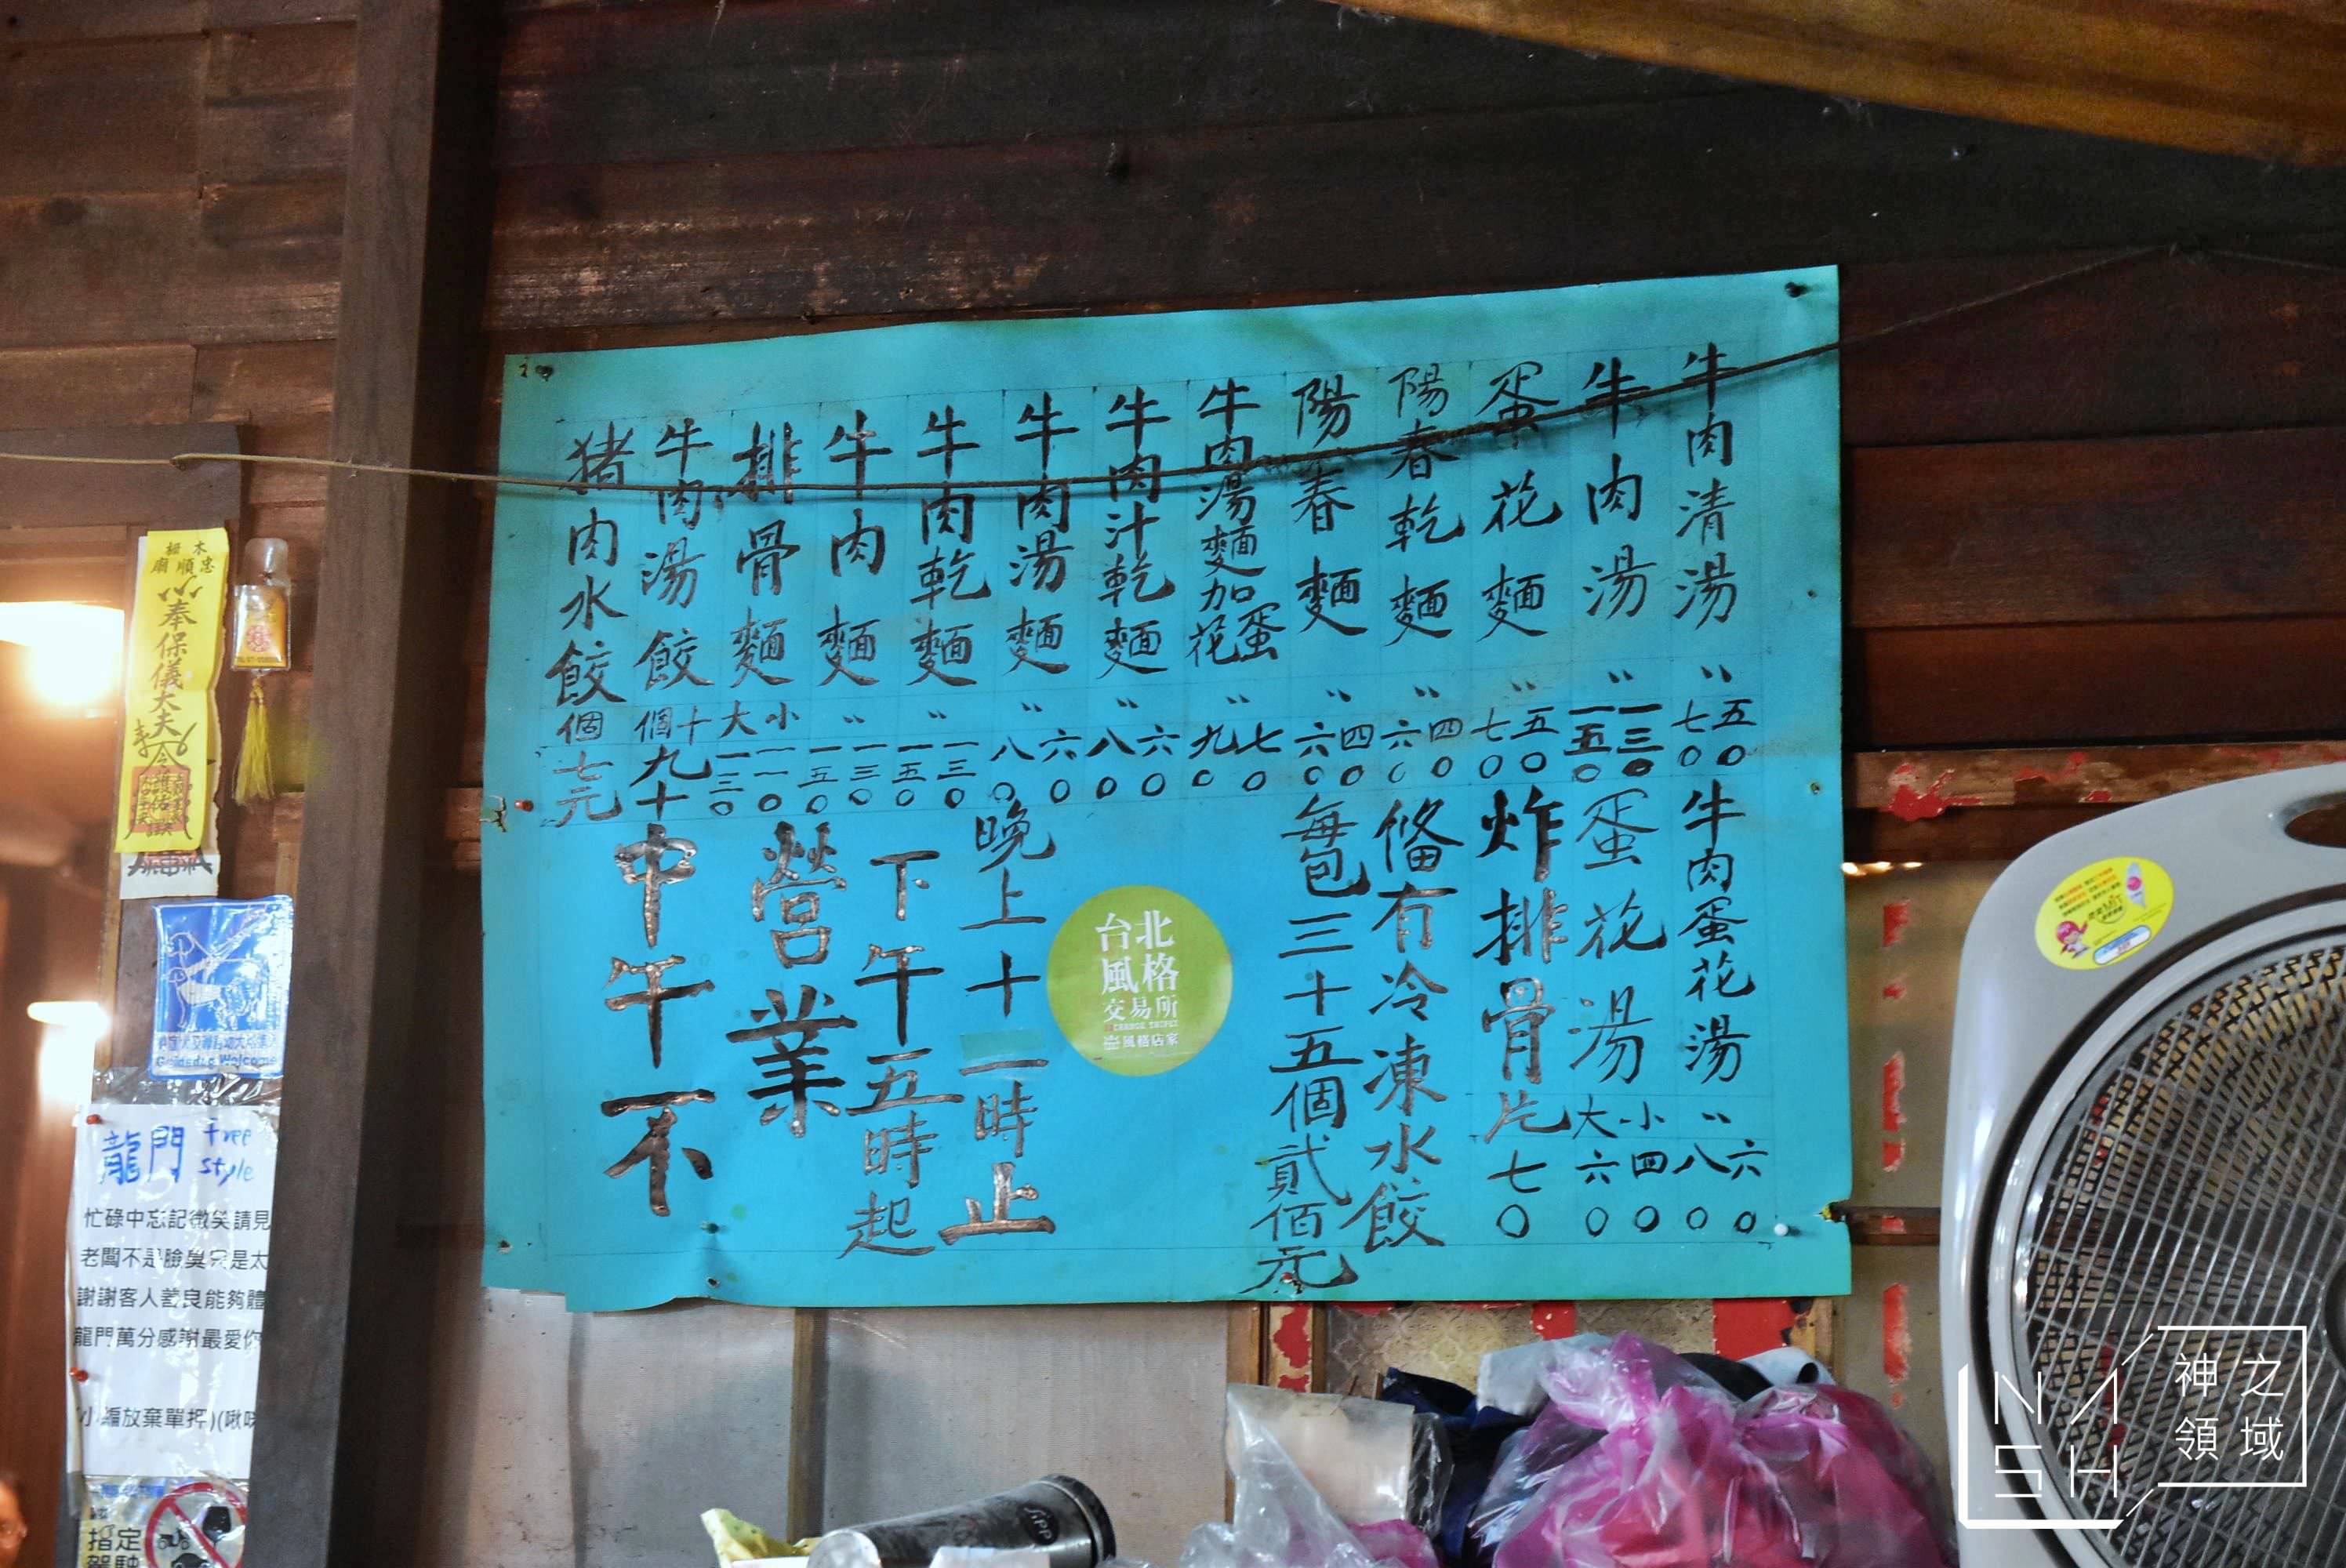 牛肉清湯 〃 五〇 七〇
牛肉湯 〃 一三〇 一五〇
蛋花麵 〃 五〇 七〇
陽春乾麵 〃 四〇 六〇
陽春麵 〃 四〇 六〇
牛肉湯麵加蛋花 〃 七〇 九〇
牛肉汁乾麵 〃 六〇 八〇
牛肉湯麵 〃 六〇 八〇
牛肉乾麵 〃 一三〇 一五〇
牛肉麵 〃 一三〇 一五〇
排骨麵 小 一一〇 大 一三〇
牛肉湯餃 十個 九十
猪肉水餃 個 七元
牛肉蛋花湯 〃 六〇 八〇
蛋花湯 小 四〇 大 六〇
炸排骨片 七〇
俻有冷凍水餃
每包三十五個貳佰元
台北
風格
交易所
風格店家
晚上十二時止
下午五時起
營業
中午不
木柵
忠順廟
奉保儀大夫
Guidedog Welcome
龍門 free
style
忙碌中忘記微笑請見
老闆不是臉臭只是太
謝謝客人善良能夠體
龍門萬分感謝最愛你
小編放棄單押)(啾咪
指定
駕駛
NASH
神之
領域